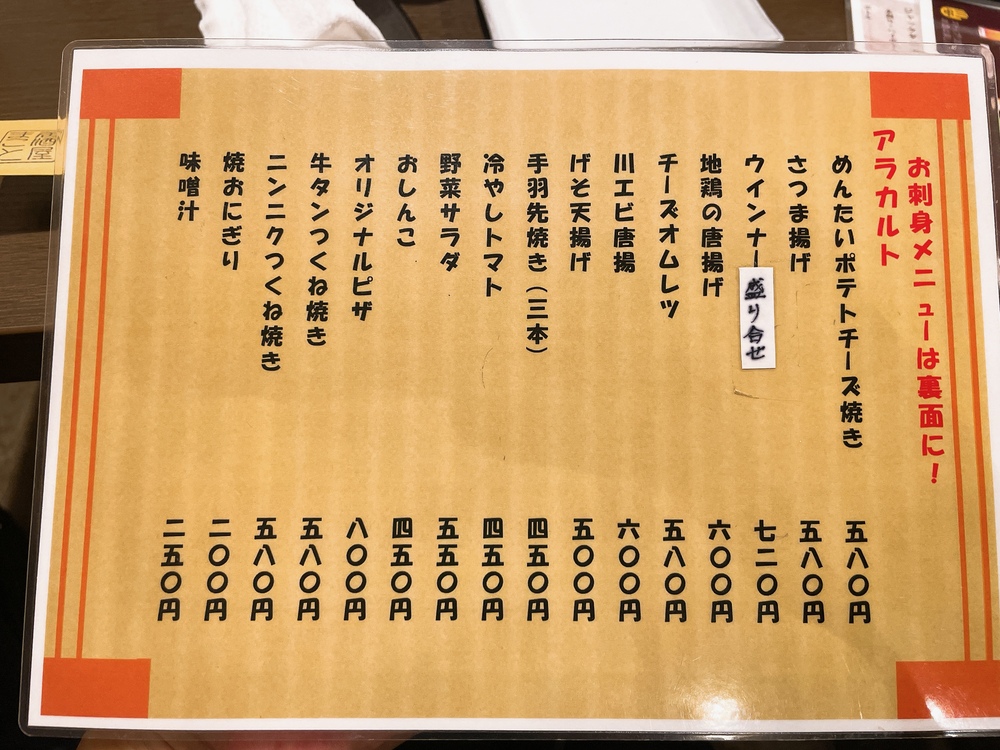 お刺身メニューは裏面に！
アラカルト
めんたいポテトチーズ焼き 五八〇円
さつま揚げ 五八〇円
ウインナー盛り合せ 七二〇円
地鶏の唐揚げ 六〇〇円
チーズオムレツ 五八〇円
川エビ唐揚 六〇〇円
げそ天揚げ 五〇〇円
手羽先焼き（三本） 四五〇円
冷やしトマト 四五〇円
野菜サラダ 五五〇円
おしんこ 四五〇円
オリジナルピザ 八〇〇円
牛タンつくね焼き 五八〇円
ニンニクつくね焼き 五八〇円
焼おにぎり 二〇〇円
味噌汁 二五〇円